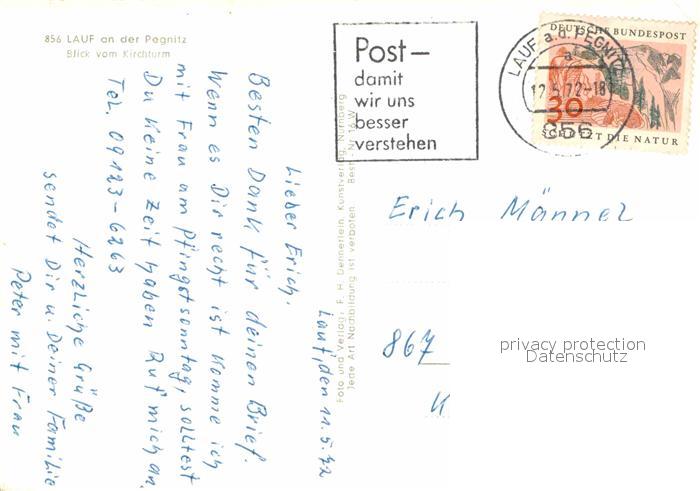 856 LAUF an der Pegnitz
Blick vom Kirchturm
Lauf, den 11.5.72
Lieber Erich.
Besten Dank für deinen Brief.
Wenn es Dir recht ist komme ich
mit Frau am Pfingstsonntag, solltest
Du keine Zeit haben Ruf mich an
Tel. 09123-6263
Herzliche Grüße
sendet Dir u. Deiner Familie
Peter mit Frau
Foto und Verlag: F. H. Dennerlein, Kunstverlag, Nürnberg
Jede Art Nachbildung ist verboten Best.-Nr.
Post—
damit
wir uns
besser
verstehen
LAUF a.d. PEGNITZ
a
12.5.72-18
856
DEUTSCHE BUNDESPOST
30
SCHÜTZT DIE NATUR
Erich Männel
867
privacy protection
Datenschutz